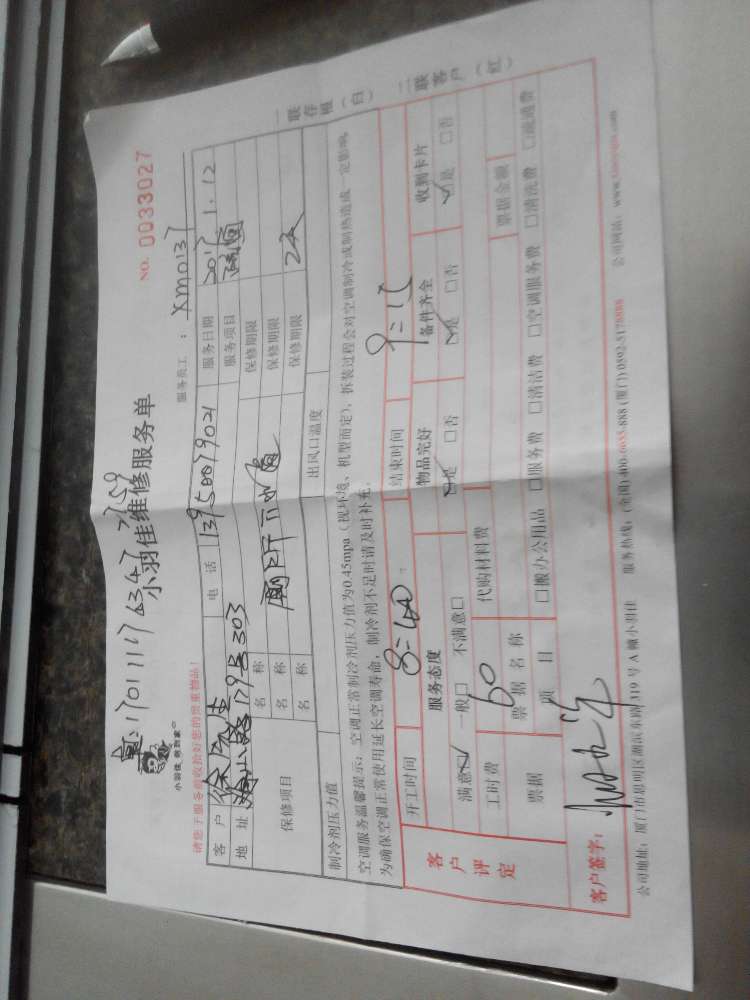 NO. 0033027
小羽佳维修服务单
小羽佳，做到家
请您于服务前收拾好您的贵重物品！
服务员工：XM0137
客户 徐先生 电话 13950079021 服务日期 2017 1.12
地址 179号303 服务项目
保修项目 名称 保修期限
名称 保修期限
名称 保修期限
制冷剂压力值 出风口温度
空调服务温馨提示：空调正常制冷剂压力值为0.45mpa（视环境、机型而定），拆装过程会对空调制冷或制热造成一定影响
为确保空调正常使用延长空调寿命，制冷剂不足时请及时补充。
一联存根（白）
二联客户（红）
客户评定
开工时间 8:40 结束时间 9:15
服务态度 物品完好 备件齐全 收到卡片
满意☑ 一般□ 不满意□ ☑是 □否 ☑是 □否 ☑是 □否
工时费 60 代购材料费
票据 票据名称 票据金额
项目 □搬办公用品 □服务费 □清洁费 □空调服务费 □清洗费 □疏通费
客户签字：
公司地址：厦门市思明区湖滨东路319号A幢小羽佳 服务热线：(全国)400-6035-888 (厦门)0592-5178888 公司网站：